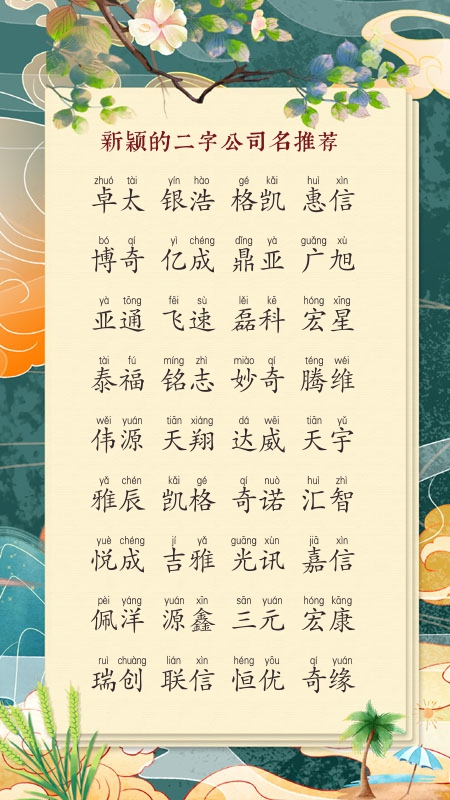 新颖的二字公司名推荐
zhuó tài yín hào gé kǎi huì xìn
卓太 银浩 格凯 惠信
bó qí yì chéng dǐng yà guǎng xù
博奇 亿成 鼎亚 广旭
yà tōng fēi sù lěi kē hóng xīng
亚通 飞速 磊科 宏星
tài fú míng zhì miào qí téng wéi
泰福 铭志 妙奇 腾维
wěi yuán tiān xiáng dá wēi tiān yǔ
伟源 天翔 达威 天宇
yǎ chén kǎi gé qí nuò huì zhì
雅辰 凯格 奇诺 汇智
yuè chéng jí yǎ guāng xùn jiā xìn
悦成 吉雅 光讯 嘉信
pèi yáng yuán xīn sān yuán hóng kāng
佩洋 源鑫 三元 宏康
ruì chuàng lián xìn héng yōu qí yuán
瑞创 联信 恒优 奇缘